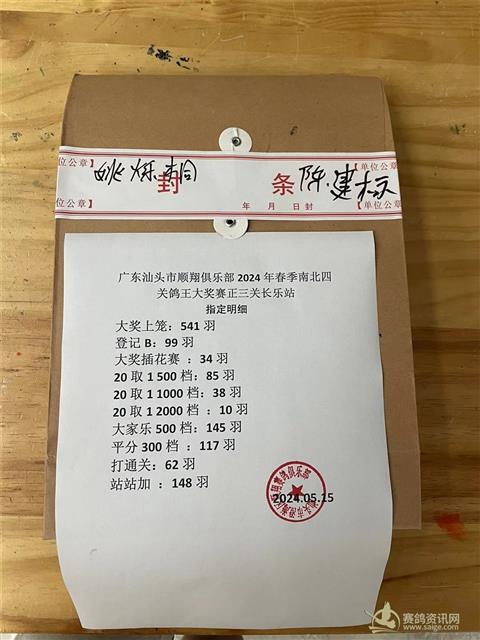 位公章】
封
条
【单位公章
位公章】
年 月 日封
【单位公章
陈建标
广东汕头市顺翔俱乐部 2024 年春季南北四
关鸽王大奖赛正三关长乐站
指定明细
大奖上笼：541 羽
登记 B：99 羽
大奖插花赛 ：34 羽
20 取 1 500 档：85 羽
20 取 1 1000 档：38 羽
20 取 1 2000 档 ：10 羽
大家乐 500 档：145 羽
平分 300 档 ：117 羽
打通关：62 羽
站站加 ：148 羽
2024.05.15
赛鸽资讯网
www.saige.com